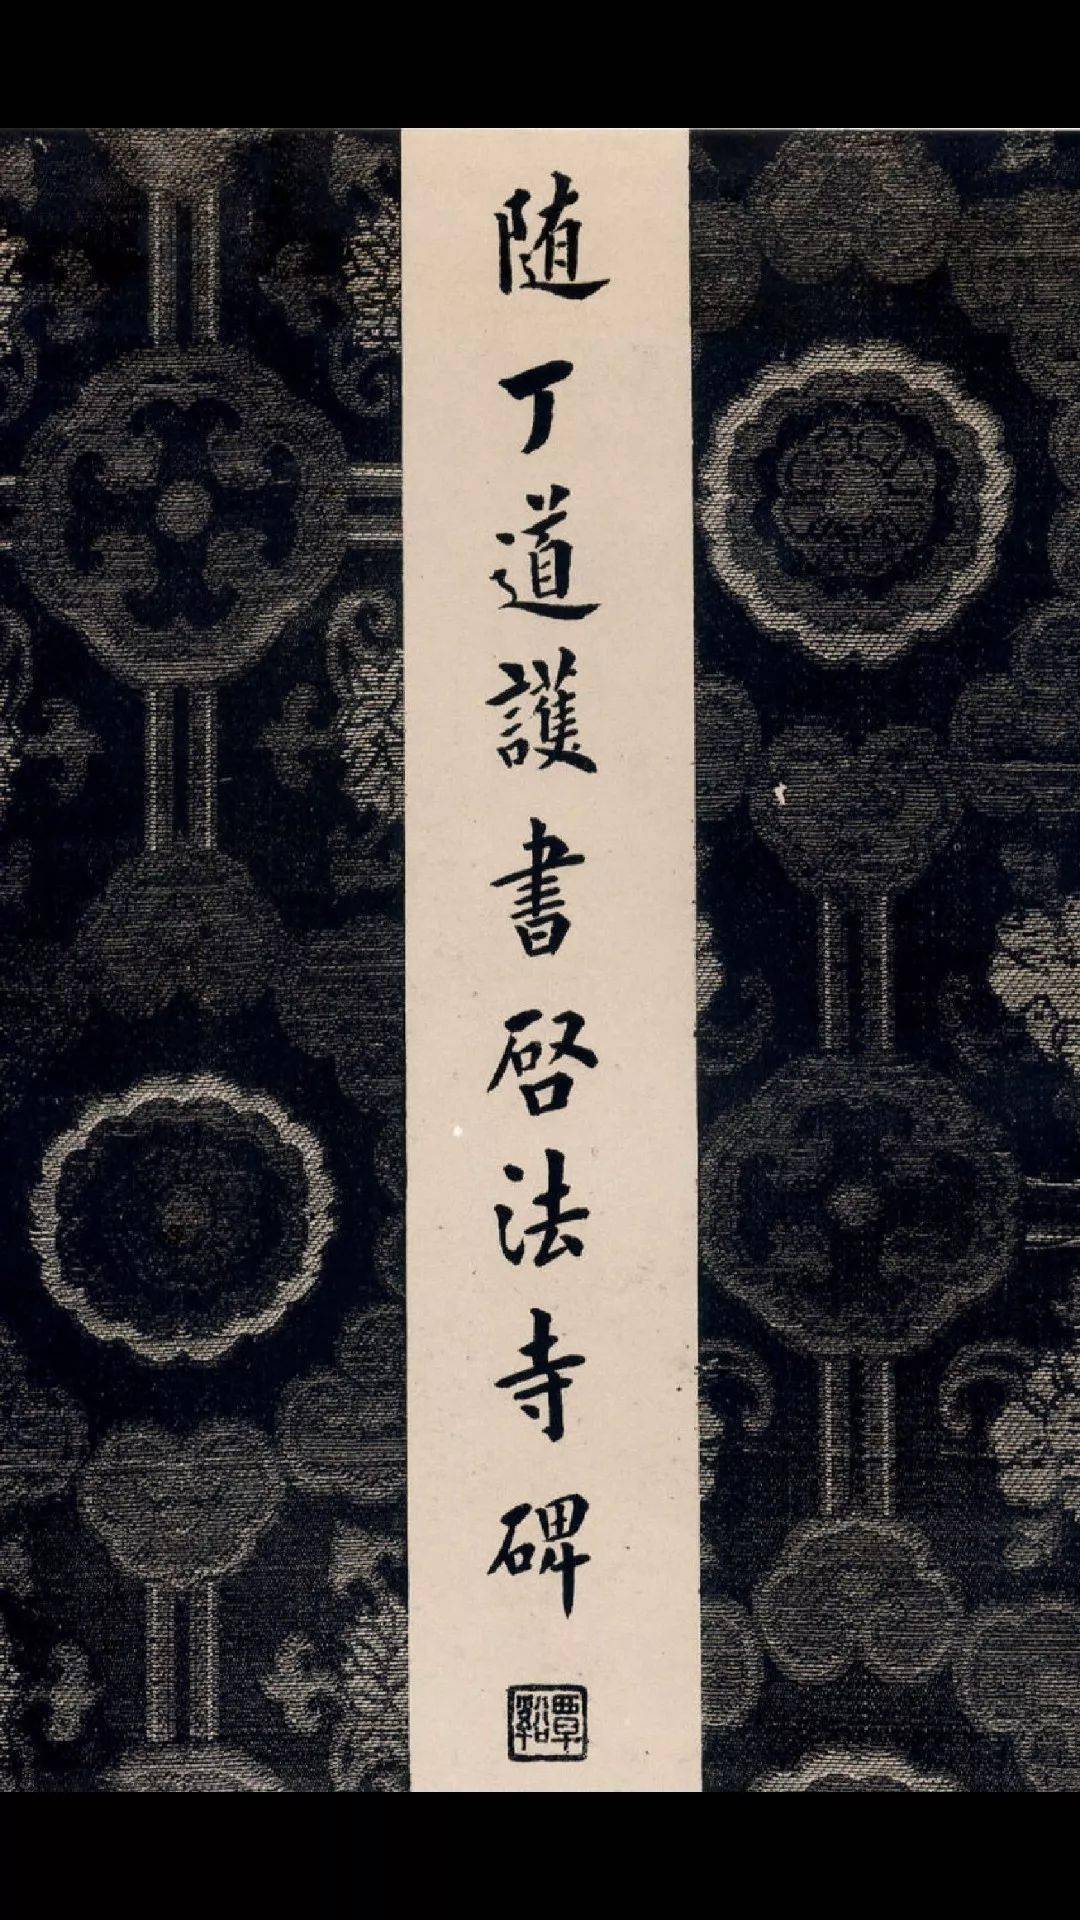 随丁道護書啓法寺碑
覃谿